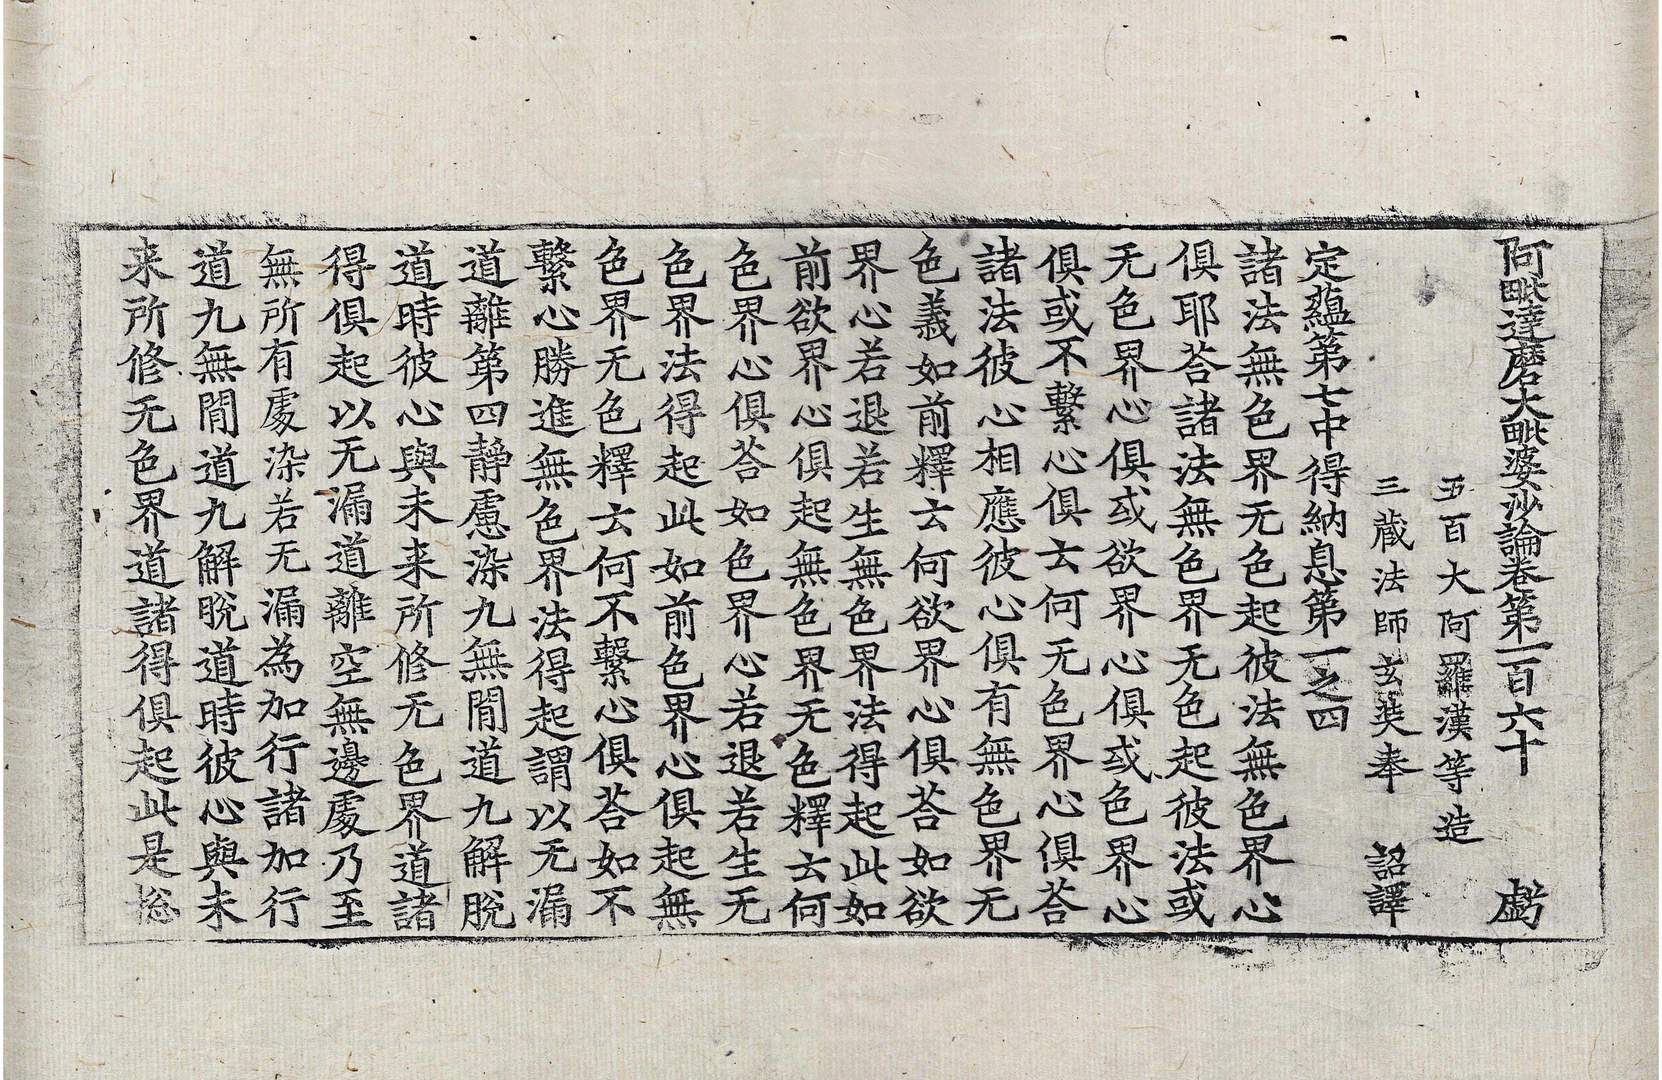 阿毗達磨大毗婆沙論卷第一百六十 虧
五百大阿羅漢等造
三藏法師玄奘奉 詔譯
定蘊第七中得納息第一之四
諸法無色界无色起彼法無色界心
俱耶荅諸法無色界无色起彼法或
无色界心俱或欲界心俱或色界心
俱或不繫心俱云何无色界心俱荅
諸法彼心相應彼心俱有無色界无
色義如前釋云何欲界心俱荅如欲
界心若退若生無色界法得起此如
前欲界心俱起無色界无色釋云何
色界心俱荅如色界心若退若生无
色界法得起此如前色界心俱起無
色界无色釋云何不繫心俱荅如不
繫心勝進無色界法得起謂以无漏
道離第四靜慮染九無閒道九解脫
道時彼心與未来所修无色界道諸
得俱起以无漏道離空無邊處乃至
無所有處染若无漏為加行諸加行
道九無閒道九解脫道時彼心與未
来所修无色界道諸得俱起此是捴